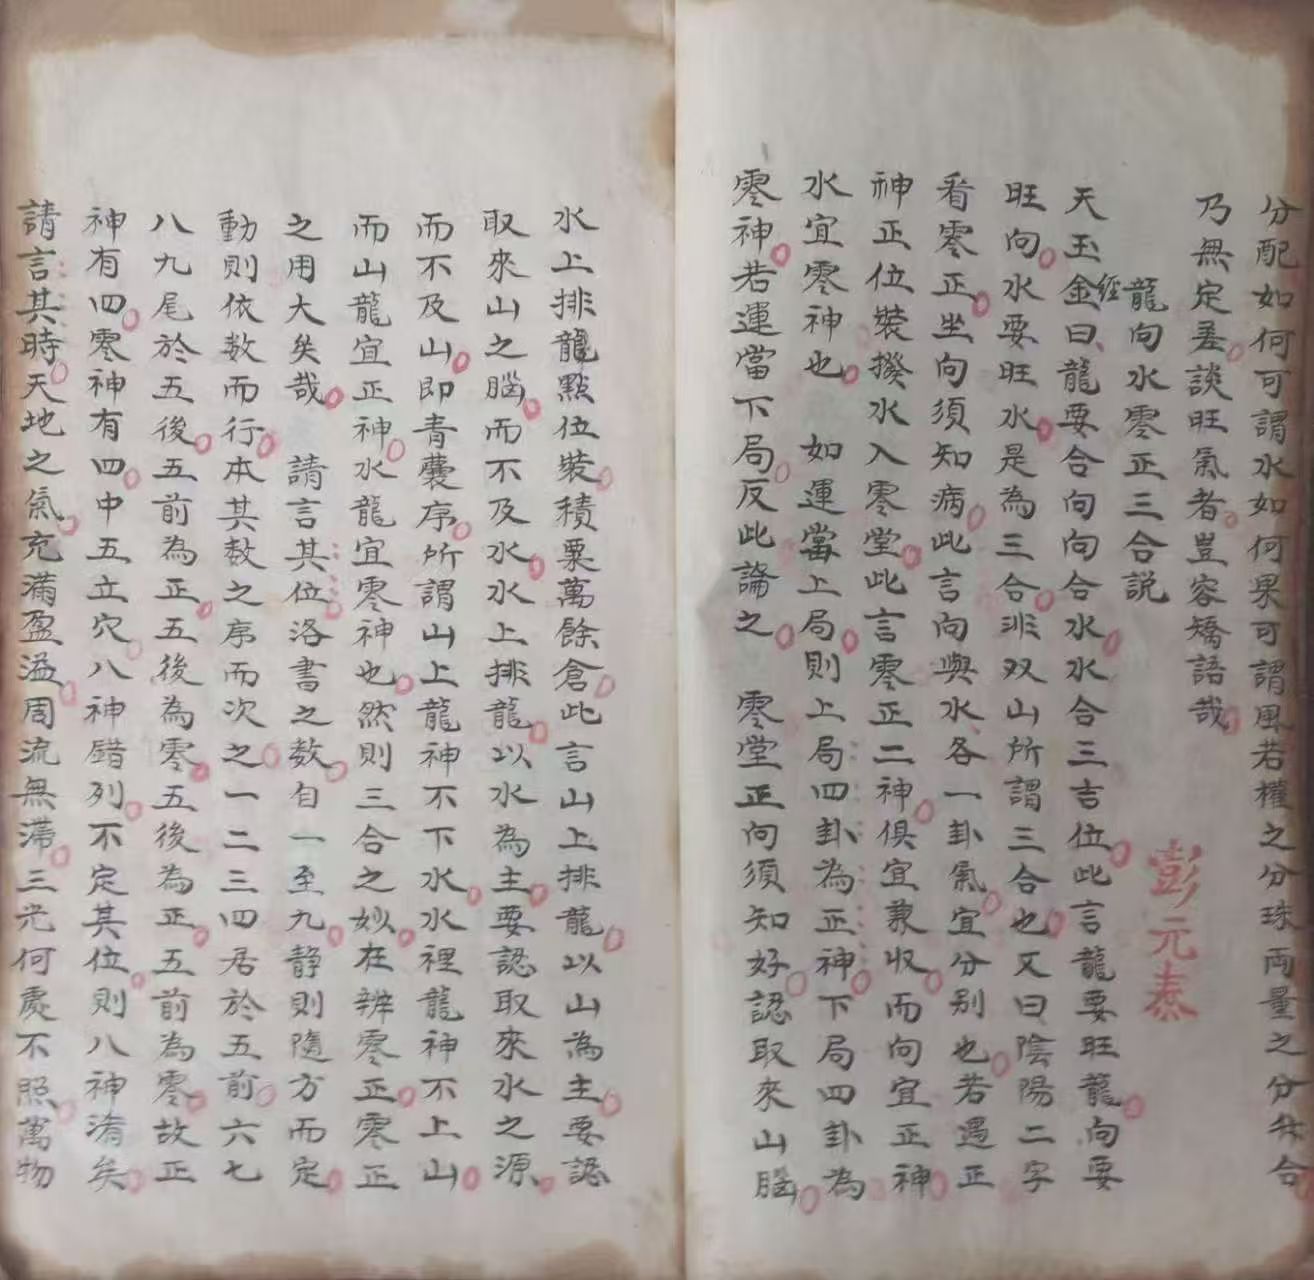 分配如何可謂水如何果可謂風若權之分珠両量之分合
乃無定差談旺氣者豈容矯語哉
龍向水零正三合説
彭元泰
天玉經金曰龍要合向向合水水合三吉位此言龍要旺龍向要
旺向水要旺水是為三合非双山所謂三合也又曰陰陽二字
看零正坐向須知病此言向與水各一卦氣宜分别也若遇正
神正位裝撥水入零堂此言零正二神俱宜兼收而向宜正神
水宜零神也 如運當上局則上局四卦為正神下局四卦為
零神若運當下局反此論之 零堂正向須知好認取來山腦
水上排龍點位裝積粟萬餘倉此言山上排龍以山為主要認
取來山之腦而不及水水上排龍以水為主要認取來水之源
而不及山即青囊序所謂山上龍神不下水水裡龍神不上山
而山龍宜正神水龍宜零神也然則三合之妙在辨零正零正
之用大矣哉 請言其位洛書之数自一至九静則隨方而定
動則依数而行本其数之序而次之一二三四居於五前六七
八九尾於五後五前為正五後為零五後為正五前為零故正
神有四零神有四中五立穴八神錯列不定其位則八神淆矣
請言其時天地之氣充滿盈溢周流無滯三光何處不照萬物